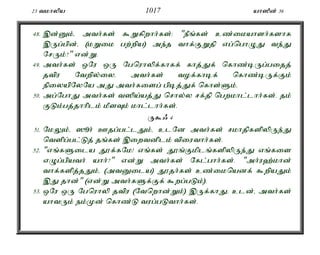 23 வமாலிய 1017 யாஸீன் 36
48. இன்னும், அவர்கள் கூறுகிறார்கள்: "நீங்கள் உண்மையாளர்களாக
இருப்பின், (மறுமை பற்றிய) அந்த வாக்குறுதி எப்பொழுது வந்து
சேரும்?" என்று.
49. அவர்கள் ஒரே ஒரு பேரொலிக்காகக் காத்துக் கொண்டிருப்பதைத்
தவிர வேறில்லை. அவர்கள் வழக்காடிக் கொண்டிருக்கும்
நிலையிலேயே அது அவர்களைப் பிடித்துக் கொள்ளும்.
50. அப்போது அவர்கள் வஸிய்யத்து சொல்ல சக்தி பெறமாட்டார்கள். தம்
குடும்பத்தாரிடம் மீளவும் மாட்டார்கள்.
ருகூஃ 4
51. மேலும், ஸூர் ஊதப்பட்டதும், உடனே அவர்கள் சமாதிகளிலிருந்து
வெளிப்பட்டுத் தங்கள் இறைவனிடம் விரைவார்கள்.
52. "எங்களுடைய துக்கமே! எங்கள் தூங்குமிடங்களிலிருந்து எங்களை
எழுப்பியவர் யார்?" என்று அவர்கள் கேட்பார்கள். "அர்ரஹ்மான்
வாக்களித்ததும், (அவனுடைய) தூதர்கள் உண்மையெனக் கூறியதும்
இது தான்" (என்று அவர்களுக்குக் கூறப்படும்).
53. ஒரே ஒரு பேரொலி தவிர (வேறொன்றும்) இருக்காது; உடன், அவர்கள்
யாவரும் நம்முன் கொண்டு வரப்படுவார்கள்.